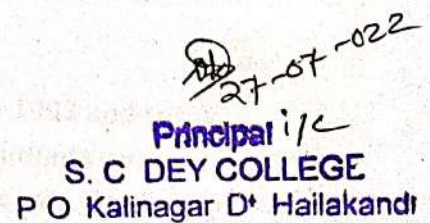 27-07-022
Principal i/c
S. C DEY COLLEGE
P O Kalinagar Dt Hailakandi